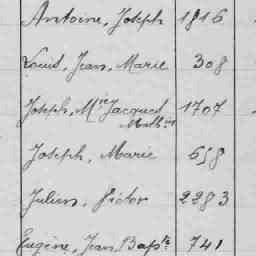 Antoine, Joseph 1816
Louis, Jean, Marie 308
Joseph, Mie Jacques 1707
Math.in
Joseph, Marie 658
Julien, Victor 2283
Eugène, Jean Bapte 741